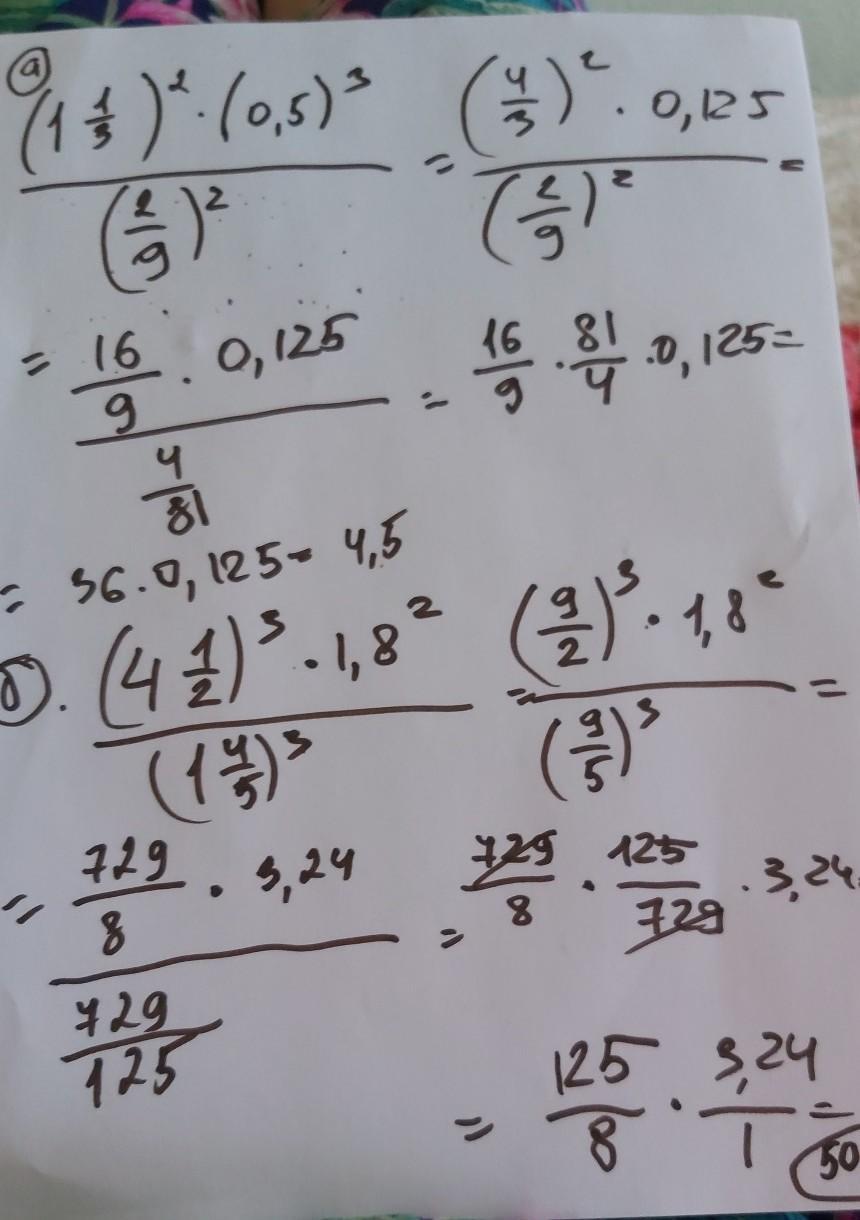 а) ((1 1/3)² · (0,5)³)/((2/9)²) = ((4/3)² · 0,125)/((2/9)²) =
= (16/9 · 0,125)/(4/81) = 16/9 · 81/4 · 0,125 =
= 36 · 0,125 = 4,5
б). ((4 1/2)³ · 1,8²)/((1 4/5)³) = ((9/2)³ · 1,8²)/((9/5)³) =
= (729/8 · 3,24)/(729/125) = 729/8 · 125/729 · 3,24
= 125/8 · 3,24/1 = 50